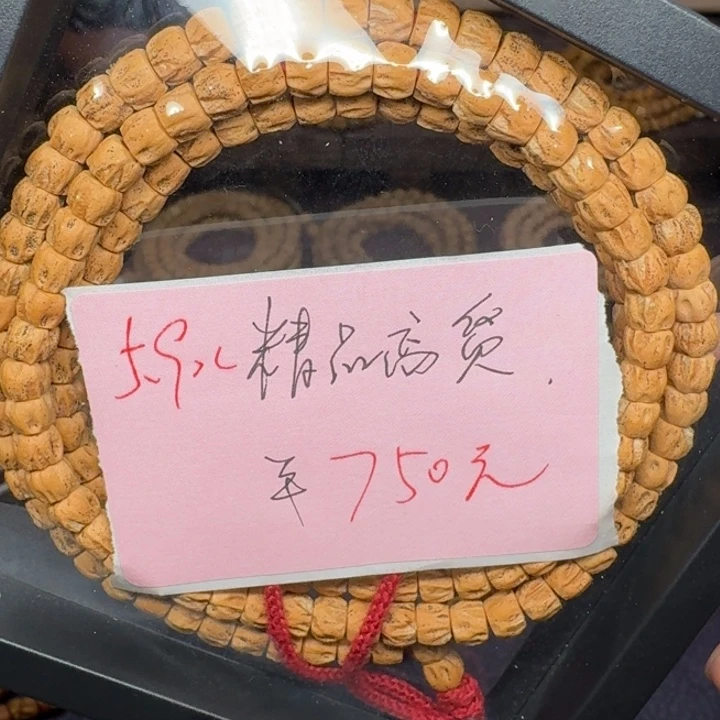 5.9 精品高货.
¥750元